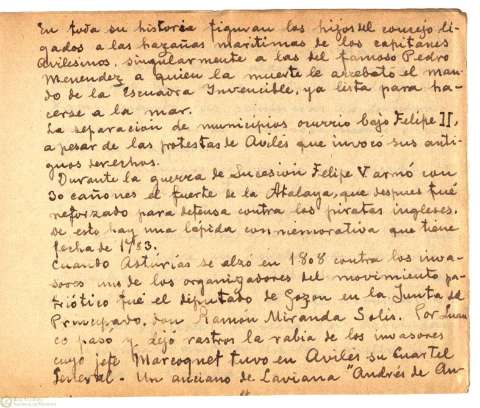 En toda su historia figuran los hijos del concejo li-
gados a las hazañas maritimas de los capitanes
avilesinos, singularmente a las del famoso Pedro
Menendez a quien la muerte le arrebató el man-
do de la Escuadra Invencible, ya lista para ha-
cerse a la mar.
La separacion de municipios ocurrio bajo Felipe II,
a pesar de las protestas de Avilés que invocó sus anti-
guos derechos.
Durante la guerra de Sucesion Felipe V armó con
30 cañones el fuerte de la Atalaya, que despues fué
reforzado para defensa contra los piratas ingleses.
De esto hay una lápida conmemorativa que tiene
fecha de 1783.
Cuando Asturias se alzó en 1808 contra los inva-
sores uno de los organizadores del movimiento pa-
triótico fué el diputado de Gozon en la Junta del
Principado, don Ramón Miranda Solis. Por Luan
co paso y dejó rastros la rabia de los invasores
cuyo jefe Marcognet tuvo en Aviles su Cuartel
General. Un anciano de Laviana "Andrés de An